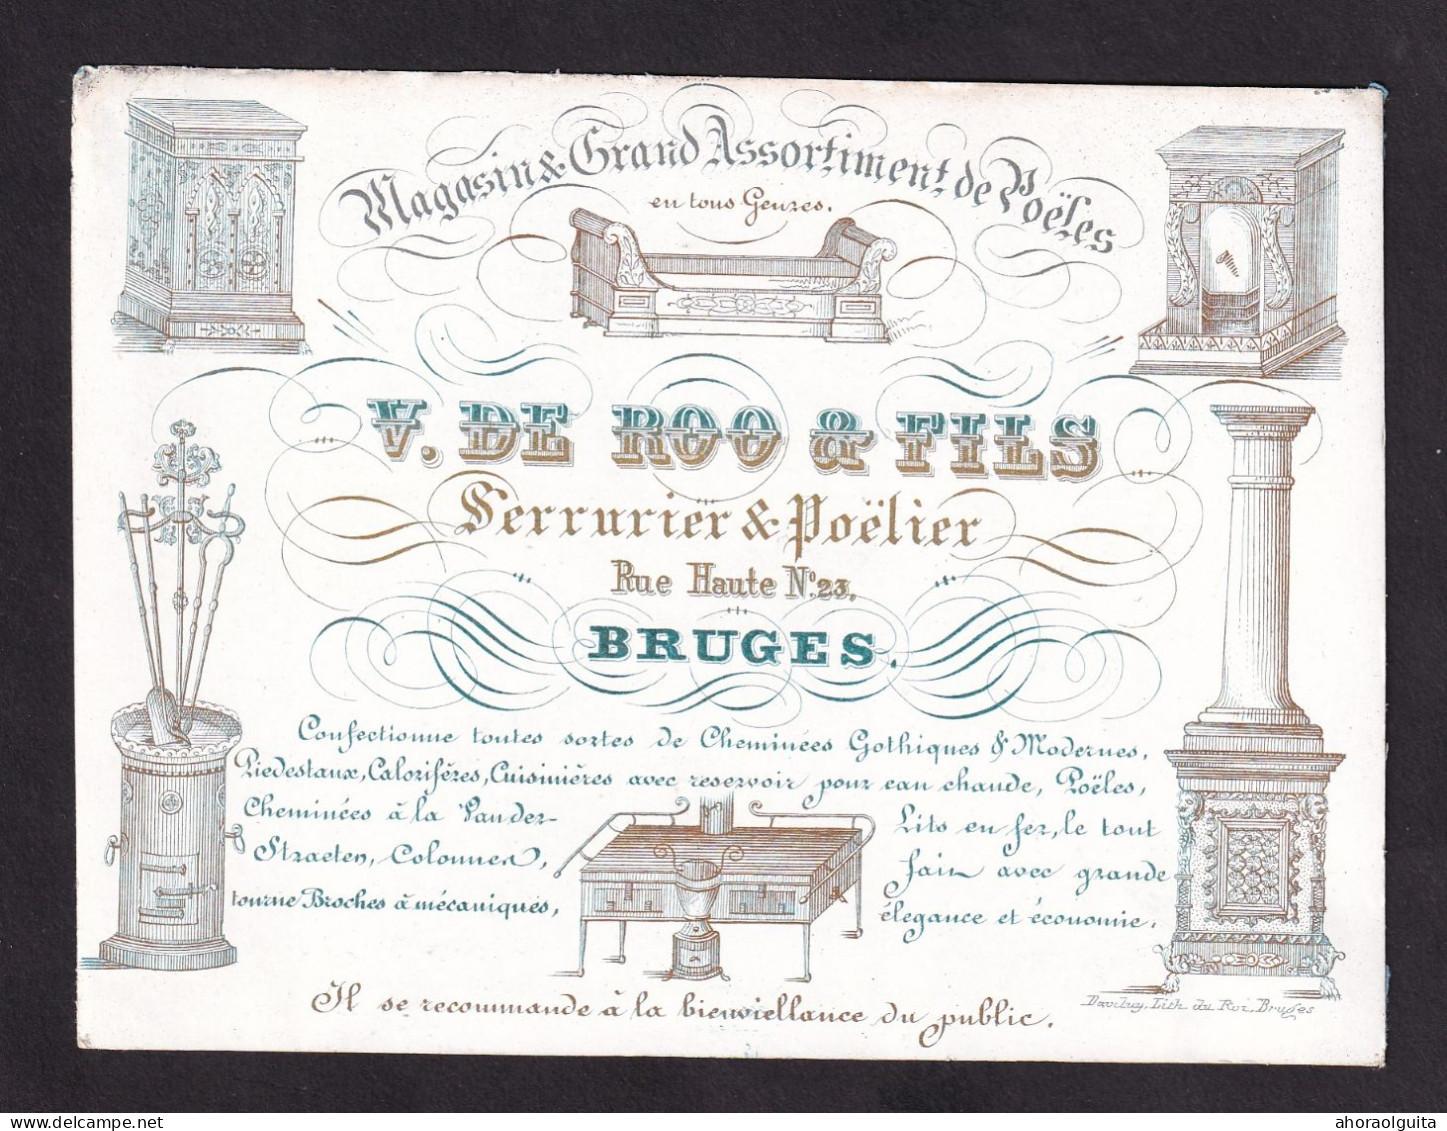 Magasin & Grand Assortiment de Poëles
en tous Genres.
V. DE ROO & FILS
Serrurier & Poëlier
Rue Haute No. 23.
BRUGES.
Confectionne toutes sortes de Cheminées Gothiques & Modernes,
Piedestaux, Calorifères, Cuisinières avec reservoir pour eau chaude, Poëles,
Cheminées à la Vander-
Straeten, Colonnes,
tourne Broches à mécaniques,
Lits en fer, le tout
fait avec grande
élegance et économie.
Il se recommande à la bienveillance du public.
Daveluy, Lith. du Roi, Bruges
ahoraolguita